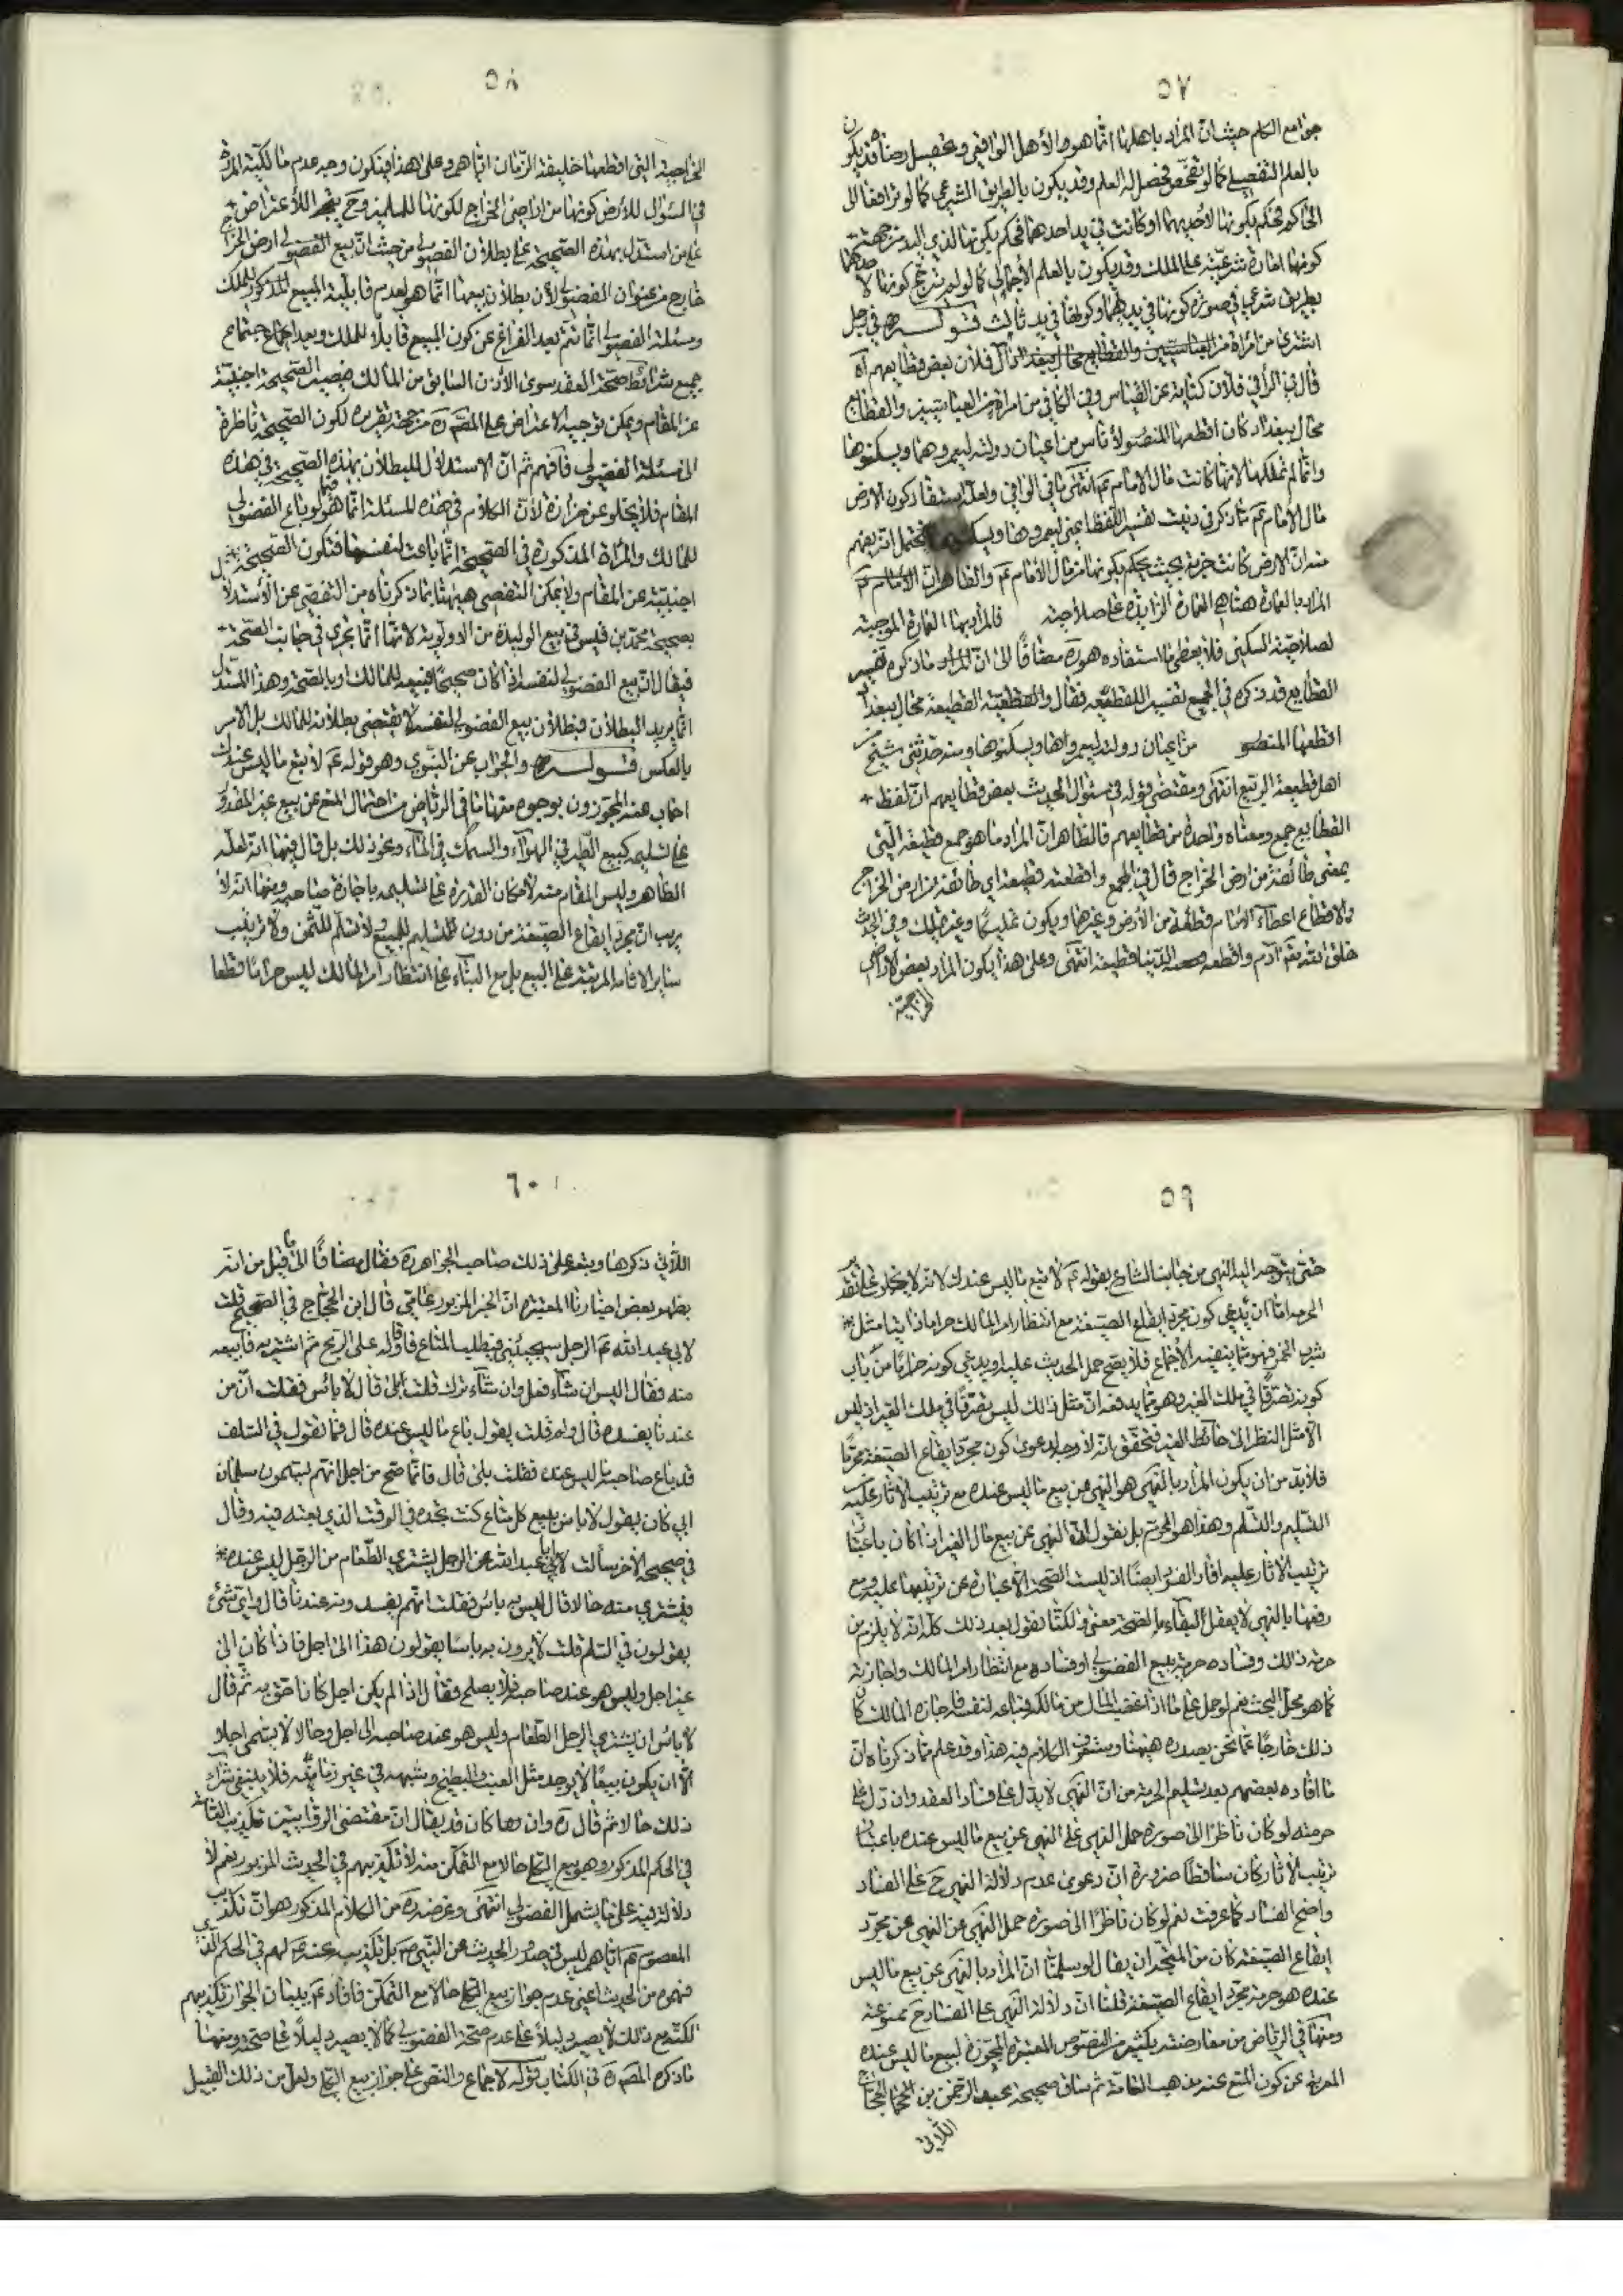 ٥٧
جوامع الكلم حيث ان المراد باهلها انما هو الأهل الواقعي وتحصيل رضاه قد يكون
بالعلم التفصيلي كما لو تفحّص فحصل له العلم وقد يكون بالطريق الشرعي كما لو ترافعا الى
الحاكم فحكم بكونها لأحدهما او كانت في يد احدهما فحكم بكونها لذي اليد من جهة
كونها امارة شرعيّة على الملك وقد يكون بالعلم الأجمالي كما لو لم يترجح كونها لاحدهما
بطريق شرعي في صورة كونها في يديهما وكونها في يد ثالث قوله ره في رجل
اشترى من امراة من العباسيين
قال في الوافي فلان كناية عن العباس وفي الكافي من امراة من العباسيين والقطايع
محال ببغداد كان اقطعها المنصور لأناس من اعيان دولته ليعمروها ويسكنوها
وانما لم تملكها لانها كانت مال الامام عم انتهى ما في الوافي ولعله استفاد كون الارض
مال الأمام عم مما ذكر في ذيل تفسير اللفظ اعني ليعمروها
منه ان الارض كانت خربة بحيث يحكم بكونها من مال الأمام عم والظاهر ان
المراد بالعمارة هنا هي العمارة الزايدة على صلاحية فالمراد بها العمارة الموجبة
لصلاحيّة السكنى فلا يعطى ما استفاده هو ره مضافًا الى ان المراد ما ذكره تفسير
القطايع قد ذكره في المجمع تفسير اللقطيعه فقال والقطيعة محال ببغداد
اقطعها المنصور من اعيان دولته ليعمروها ويسكنوها ومنه حدثني شيخ من
اهل قطيعة الربيع انتهى ومقتضى قوله في سئوال الحديث بعض قطايعهم ان لفظ
القطايع جمع ومعناه واحدة من قطايعهم فالظاهر ان المراد ما هو جمع قطيعة التي
بمعنى طائفة من ارض الخراج قال في المجمع واقطعته قطيعة اي طائفة من ارض الخراج
والاقطاع اعطاء الامام قطعة من الأرض وغيرها ويكون تمليكًا وغير تمليك وفي الحديث
خلق الله تعم آدم واقطعه الدنيا قطيعة انتهى وعلى هذا يكون المراد بعض الاراضي
الخراجيّة
٥٨
الخراجيّة التي اقطعها خليفة الزمان اياهم وعلى هذا فيكون وجه عدم مالكيّة المراة
في السئوال للأرض كونها من اراضي الخراج لكونها للمسلمين وح يتجه الأعتراض
على من استدل بهذه الصحيحة على بطلان الفضولي من حيث ان بيع الفضولي ارض الخراج
خارج من عنوان الفضولي لأن بطلان بيعها انما هو لعدم قابليّة المبيع المذكور للملك
ومسئلة الفضولي انما تتم بعد الفراغ عن كون المبيع قابلًا للملك وبعد اجتماع
جميع شرائط صحّة العقد سوى الأذن السابق من المالك فيصير الصحيحة اجنبيّة
عن المقام ويمكن توجيه الاعتراض على المصّ ره من جهة تقريره لكون الصحيحة ناظرة
الى مسئلة الفضولي فافهم ثم انّ الاستدلال للبطلان بهذه الصحيحة في هذه
المقام فلا يخلو عن حزازة لأن الكلام في هذه المسئلة انما هو فيما لو باع الفضولي
للمالك والمراة المذكورة في الصحيحة انما باعت لنفسها فتكون الصحيحة
اجنبيّة عن المقام ولا يمكن التفصي هيهنا بما ذكرناه من التفصي عن الأستدلال
بصحيحة محمّد بن قيس في بيع الوليدة من الاولويّة لانها انما تجري في جانب الصّحة
فيقال ان بيع الفضولي لنفسه اذا كان صحيحًا فبيعه للمالك اولى بالصحّة وهذا المستدل
انما يريد البطلان فبطلان بيع الفضولي لنفسه لا يقتضى بطلانه للمالك بل الامر
بالعكس قوله ره والجواب عن النبوي وهو قوله عم لا تبع ما ليس عندك
اجاب عنه المجوّزون بوجوه منها ما في الرياض من احتمال المنع عن بيع غير المقدور
على تسليمه كبيع الطير في الهواء والسمك في الماء ونحو ذلك بل قال فيها انه لعله
الظاهر وليس المقام منه لامكان القدرة على تسليمه باجازة صاحبه ومنها انه لا
يريب ان مجرد ايقاع الصيغة من دون تسليم للمبيع ولا تسلّم للثمن ولا ترتيب
ساير الاثار المرتبة على البيع بل مع البناء على انتظار امر المالك ليس حرامًا قطعا
٥٩
حتى يتوجه اليه النهي من جانب الشارع بقوله عم لا تبع ما ليس عندك لانه لا يخلو على تقدير
الحرمة اما ان يدعى كون مجرد ايقاع الصيغة مع انتظار امر المالك حراما ذاتيا مثل
شرب الخمر فهو مما ينفيه الأجماع فلا يصح حمل الحديث عليه او يدعى كونه حرامًا من باب
كونه تصرّفًا في ملك الغير وهو مما يدفعه انّ مثل ذلك ليس تصرّفًا في ملك الغير اذ ليس
الّا مثل النظر الى حائط الغير فتحقّق انه لا وجه لدعوى كون مجرد ايقاع الصيغة محرّمًا
فلا بدّ من ان يكون المراد بالنهي هو النهي عن بيع ما ليس عنده مع ترتيب الاثار عليه
التسليم والتسلّم وهذا هو المحرّم بل نقول ان النهي عن بيع مال الغير اذا كان باعتبار
ترتيب الاثار عليه افاد الفساد ايضًا اذ ليست الصحّة الّا عبارة عن ترتيبها عليه ومع
رفعها بالنهي لا يعقل البقاء للصحّة معنى ولكنّا نقول بعد ذلك كلّه انه لا يلزم من
حرمة ذلك وفساده حرمة بيع الفضولي او فساده مع انتظار امر المالك واجازته
كما هو محل البحث نعم لو حمل على ما اذا غصب المال من مالكه وباعه لنفسه فاجازه المالك كان
ذلك خارجًا عمّا نحن بصدده هيهنا وستعرف الكلام فيه هذا وقد علم مما ذكرناه ان
ما افاده بعضهم بعد تسليم الحرمة من انّ النهي لا يدل على فساد العقد وان دلّ على
حرمته لو كان ناظرًا الى صورة حمل النهي على النهي عن بيع ما ليس عنده باعتبار
ترتيب الأثار كان ساقطًا ضرورة انّ دعوى عدم دلالة النهي ح على الفساد
واضح الفساد كما عرفت نعم لو كان ناظرًا الى صورة حمل النهي عن النهي عن مجرّد
ايقاع الصيغة كان من المتجه ان يقال لو سلمنا انّ المراد بالنهي عن بيع ما ليس
عنده هو حرمة مجرّد ايقاع الصيغة قلنا انّ دلالة النهي على الفساد ح ممنوعة
ومنها في الرياض من معارضته بكثير من النصوص المعتبرة المجوّزة لبيع ما ليس عنده
المعربة عن كون المنع عنه مذهب العامّة ثم ساق صحيحة عبد الرحمن بن الحجاج
اللّاتي
٦٠
اللّاتي ذكرها وتبعه على ذلك صاحب الجواهر ره فقال مضافًا الى ما قيل من انه
يظهر بعض اخبارنا المعتبرة انّ الخبر المزبور عامّي قال ابن الحجّاج في الصحيح قلت
لابي عبد الله عم الرجل يجيئني فيطلب المتاع فاقاوله على الربح ثم اشتريه فابيعه
منه فقال اليس ان شاء فعل وان شاء ترك قلت بلى قال لا بائس فقلت انّ من
عندنا يفسده قال ولم قلت يقول باع ما ليس عنده قال فما تقول في السّلف
قد باع صاحبه ما ليس عنده فقلت بلى قال فانما صح من اجل انهم يسمّونه سلما ان
ابي كان يقول لا باس ببيع كل متاع كنت تجده في الوقت الذي بعته فيه وقال
في صحيحه الأخر سألت ابا عبد الله عن الرجل يشتري الطّعام من الرجل ليس عنده
فيشتري منه حالا قال ليس به بائس فقلت انهم يفسدونه عندنا قال واي شئ
يقولون في السّلم قلت لا يرون به باسا يقولون هذا الى اجل فاذا كان الى
غير اجل وليس هو عند صاحبه فلا يصلح فقال اذا لم يكن اجل كان احق به ثم قال
لا بائس ان يشتري الرجل الطّعام وليس هو عند صاحبه الى اجل وحالا لا يسمّى اجلا
الّا ان يكون بيعًا لا يوجد مثل العنب والبطيخ وشبهه في غير زمانه فلا ينبغي شراء
ذلك حالا ثم قال ره وان كان قد يقال انّ مقتضى الروايتين تكذيب العامّة
في الحكم المذكور وهو بيع الكلّي حالا مع التمكّن منه لا تكذيبهم في الحديث المزبور نعم لا
دلالة فيه على ما يشمل الفضولي انتهى وغرضه ره من الكلام المذكور هو انّ تكذيب
المعصوم عم اياهم ليس في صدور الحديث عن النّبي ص بل تكذيب منه عم لهم في الحكم الّذي
فهموه من الحديث اعني عدم جواز بيع الكلّي حالا مع التمكّن فافاد عم ببيان الجواز تكذيبهم
لكنّه مع ذلك لا يصير دليلًا على عدم صحّة الفضولي كما لا يصير دليلًا على صحته ومنها
ما ذكره المصّ ره في الكتاب قوله لاجماع والنص على جواز بيع الكلّي ولعلّ من ذلك القبيل